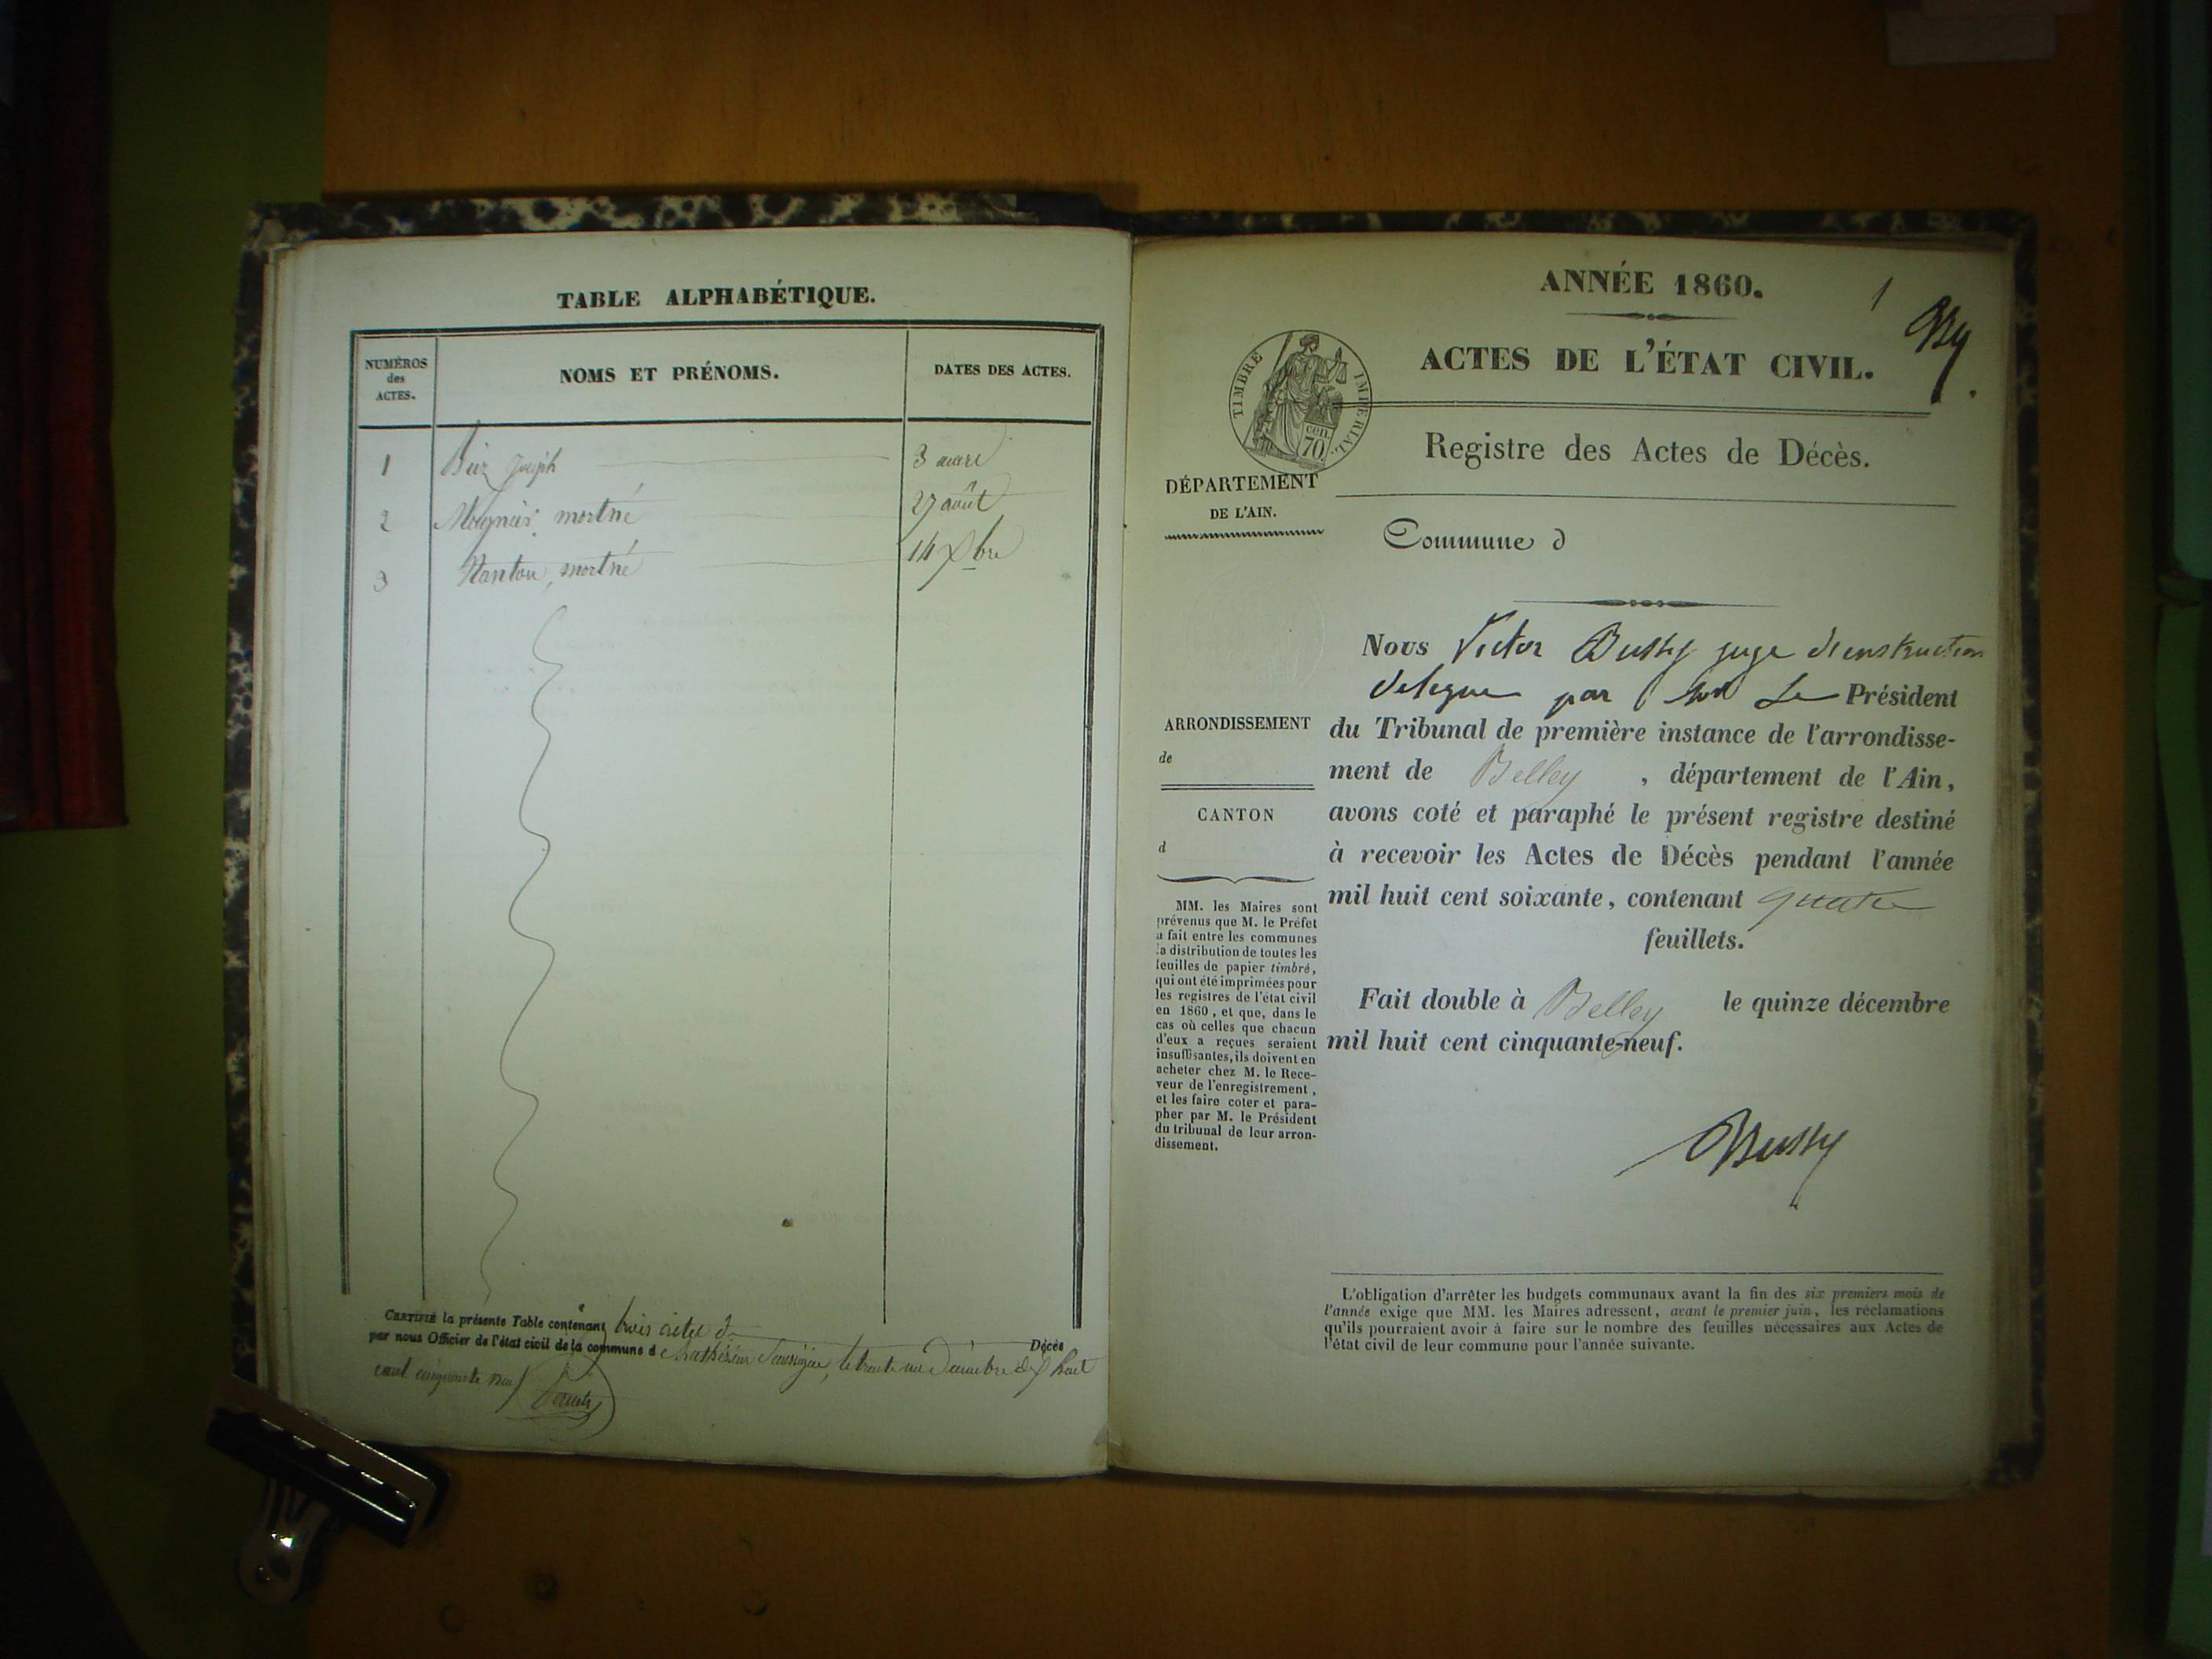 TABLE ALPHABÉTIQUE.
NUMÉROS
des
ACTES.
NOMS ET PRÉNOMS.
DATES DES ACTES.
1 Joseph 3
2 mortné 27 août
3 mortné 14 Xbre
CERTIFIÉ la présente Table contenant trois actes de
Décès
par nous Officier de l'état civil de la commune d le trente un Décembre
cent cinquante neuf
ANNÉE 1860.
1
ACTES DE L'ÉTAT CIVIL.
TIMBRE IMPÉRIAL
cen.
70.
Registre des Actes de Décès.
DÉPARTEMENT
DE L'AIN.
Commune d
ARRONDISSEMENT
de
CANTON
d
MM. les Maires sont
prévenus que M. le Préfet
a fait entre les communes
la distribution de toutes les
feuilles de papier timbré,
qui ont été imprimées pour
les registres de l'état civil
en 1860, et que, dans le
cas où celles que chacun
d'eux a reçues seraient
insuffisantes, ils doivent en
acheter chez M. le Rece-
veur de l'enregistrement,
et les faire coter et para-
pher par M. le Président
du tribunal de leur arron-
dissement.
Nous Victor Bussy juge d'instruction
delegue par Le Président
du Tribunal de première instance de l'arrondisse-
ment de Belley , département de l'Ain,
avons coté et paraphé le présent registre destiné
à recevoir les Actes de Décès pendant l'année
mil huit cent soixante, contenant quatre
feuillets.
Fait double à Belley le quinze décembre
mil huit cent cinquante-neuf.
Bussy
L'obligation d'arrêter les budgets communaux avant la fin des six premiers mois de
l'année exige que MM. les Maires adressent, avant le premier juin, les réclamations
qu'ils pourraient avoir à faire sur le nombre des feuilles nécessaires aux Actes de
l'état civil de leur commune pour l'année suivante.